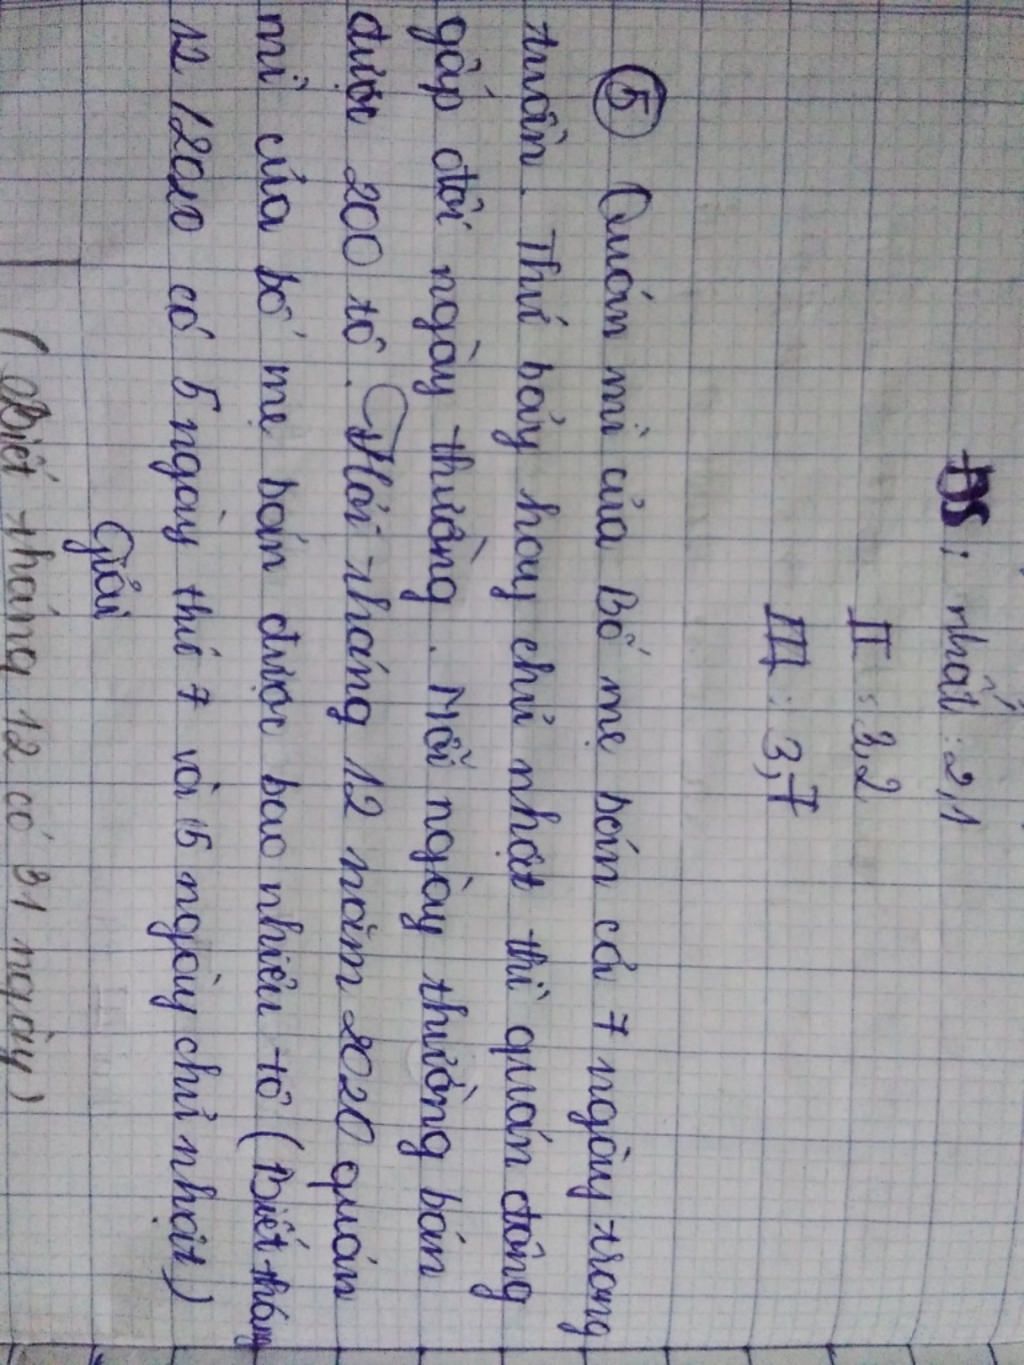 ĐS: nhất: 2,1
II: 3,2
III: 3,7
5 Quán mì của Bố mẹ bán cả 7 ngày trong
tuần. Thứ bảy hay chủ nhật thì quán đông
gấp đôi ngày thường. Mỗi ngày thường bán
được 200 tô. Hỏi tháng 12 năm 2020 quán
mì của bố mẹ bán được bao nhiêu tô (Biết tháng
12/2020 có 5 ngày thứ 7 và 5 ngày chủ nhật)
Giải
(Biết tháng 12 có 31 ngày)